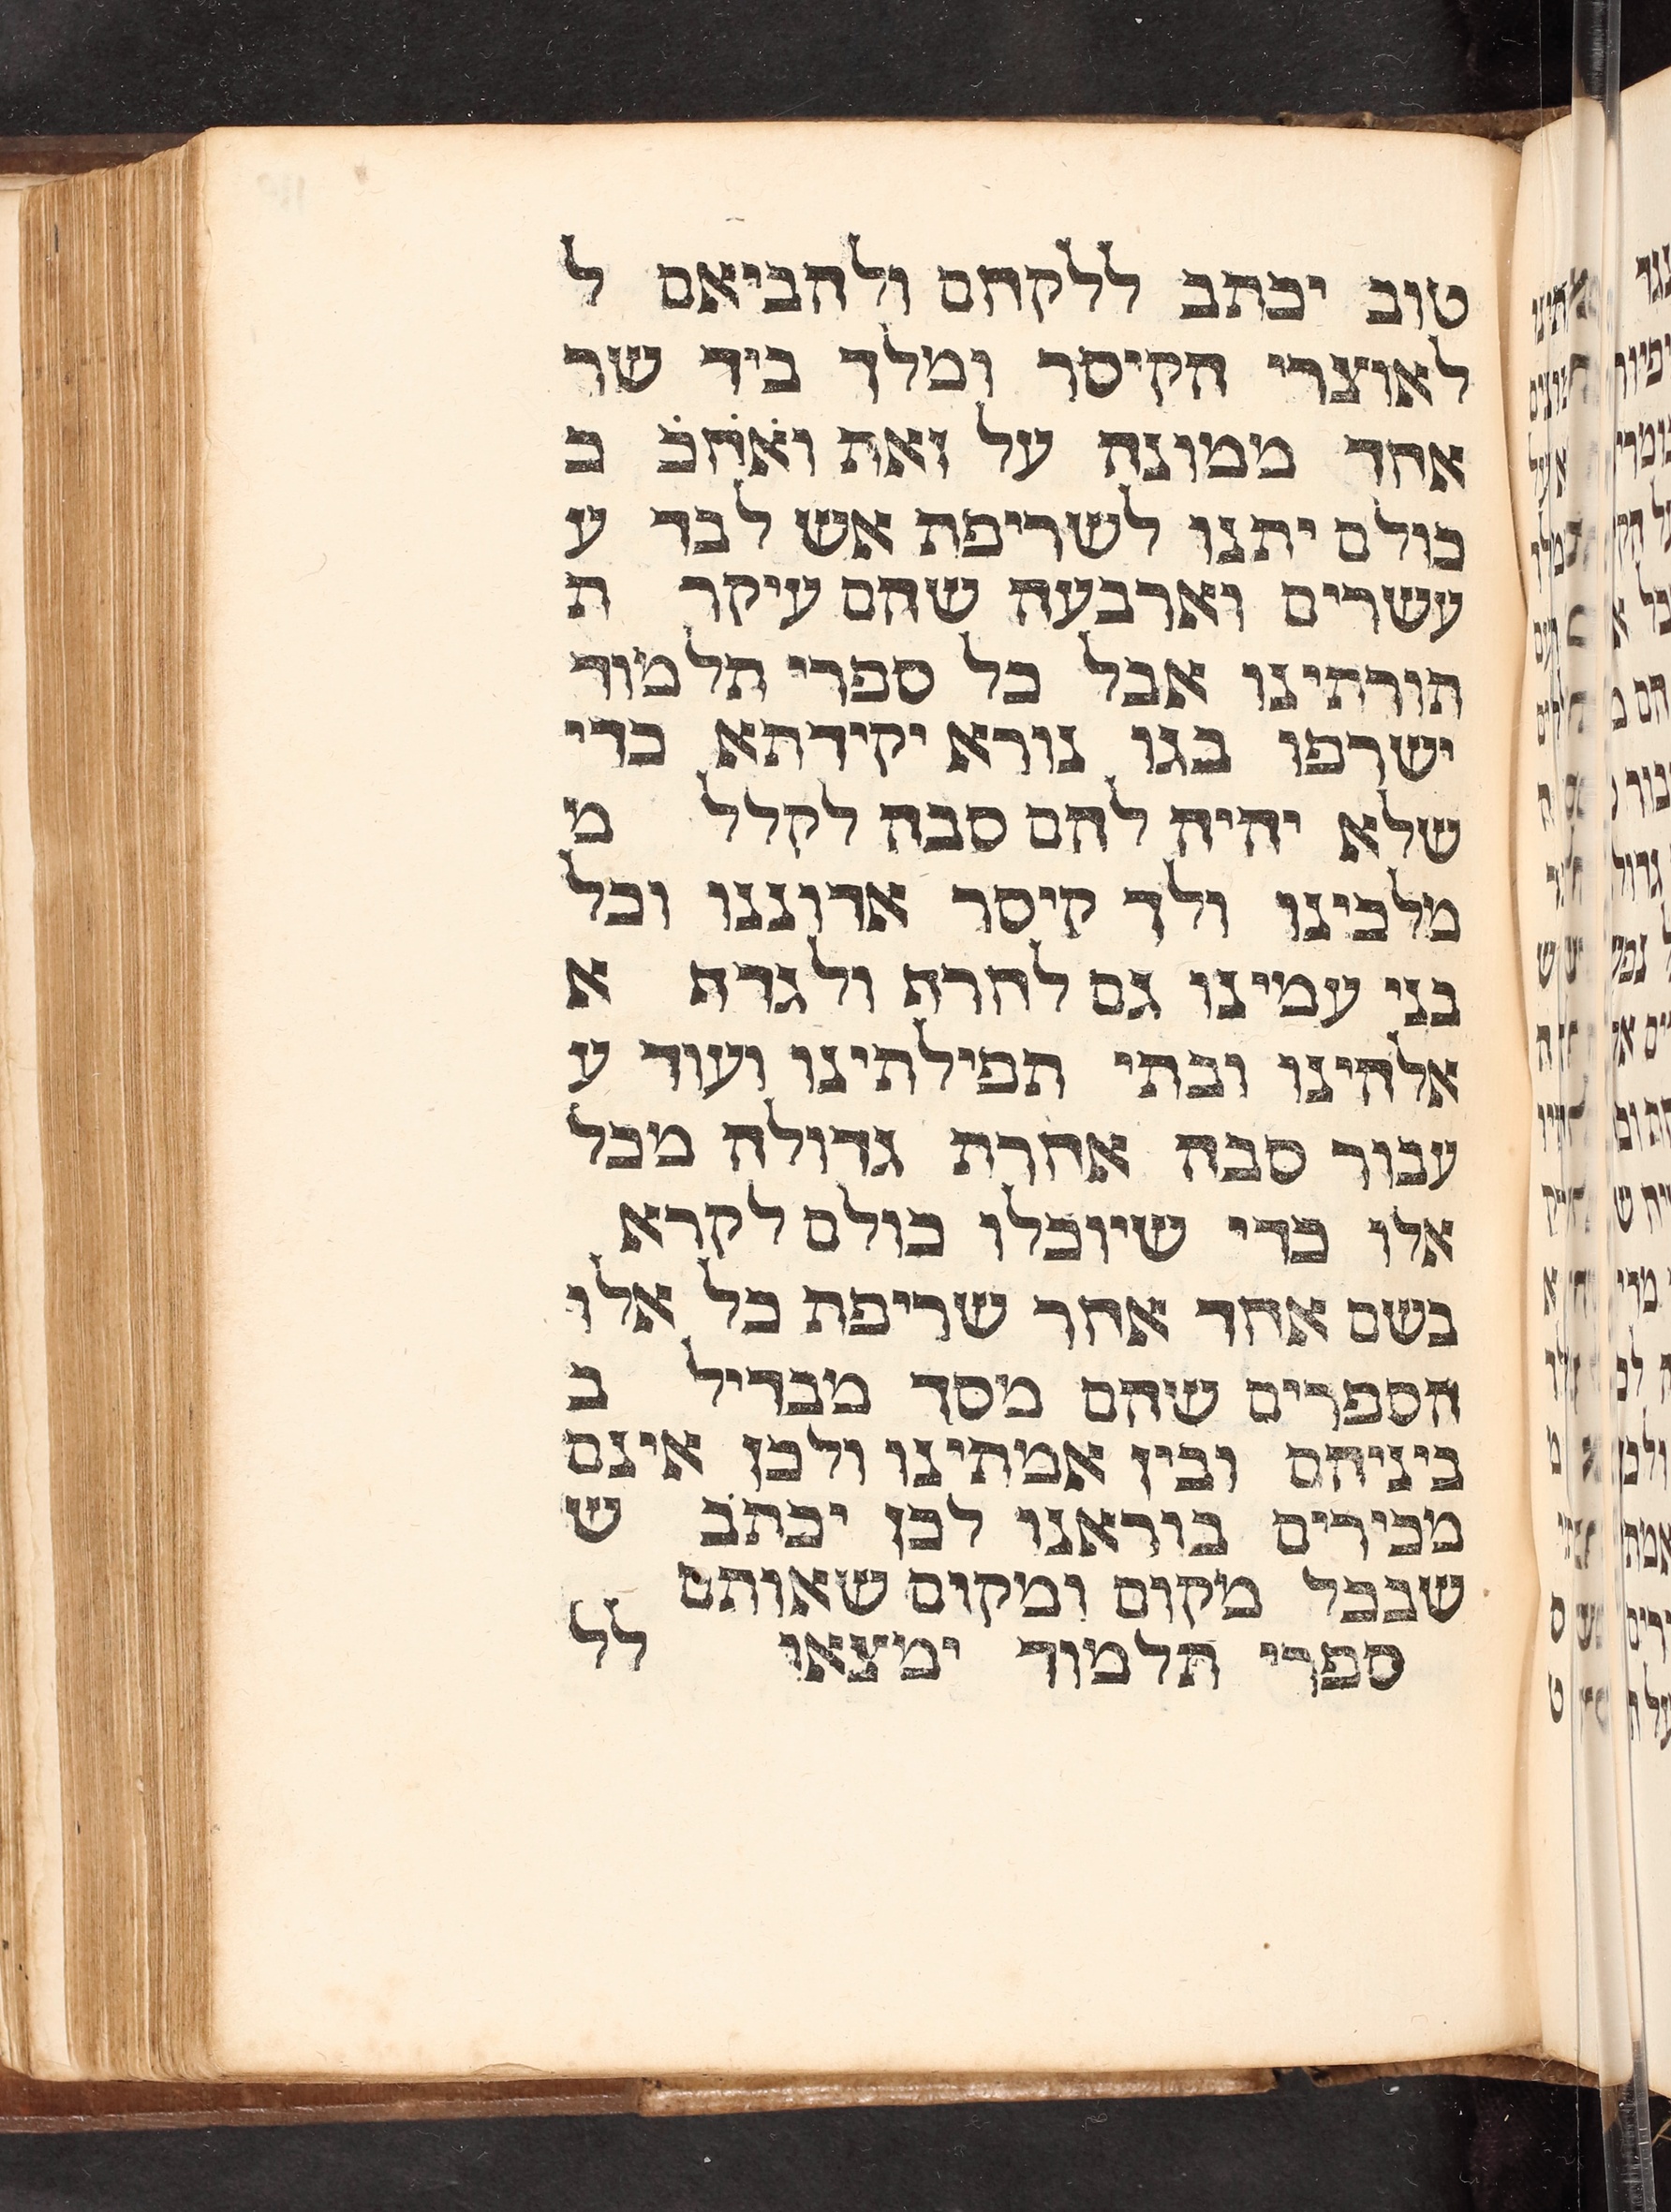 טוב יכתב ללקחם ולהביאם ל
לאוצרי הקיסר ומלך ביד שר
אחד ממונה על זאת ואׄחׄכׄ כ
כולם יתנו לשריפת אש לבד ע
עשרים וארבעה שהם עיקר ת
תורתינו אבל כל ספרי תלמוד
ישרפו בגו נורא יקידתא כדי
שלא יהיה להם סבה לקלל מ
מלכינו ולך קיסר אדוננו וכל
בני עמינו גם לחרת ולגדת א
אלהינו ובתי תפילתינו ועוד ע
עבור סבה אחרת גדולה מכל
אלו כדי שיוכלו כולם לקרא
בשם אחד אחר שריפת כל אלו
הספרים שהם מסך מבדיל ב
ביניהם ובין אמתינו ולכן אינם
מכירים בוראנו לכן יכתב ש
שבכל מקום ומקום שאותם
ספרי תלמוד ימצאו לל